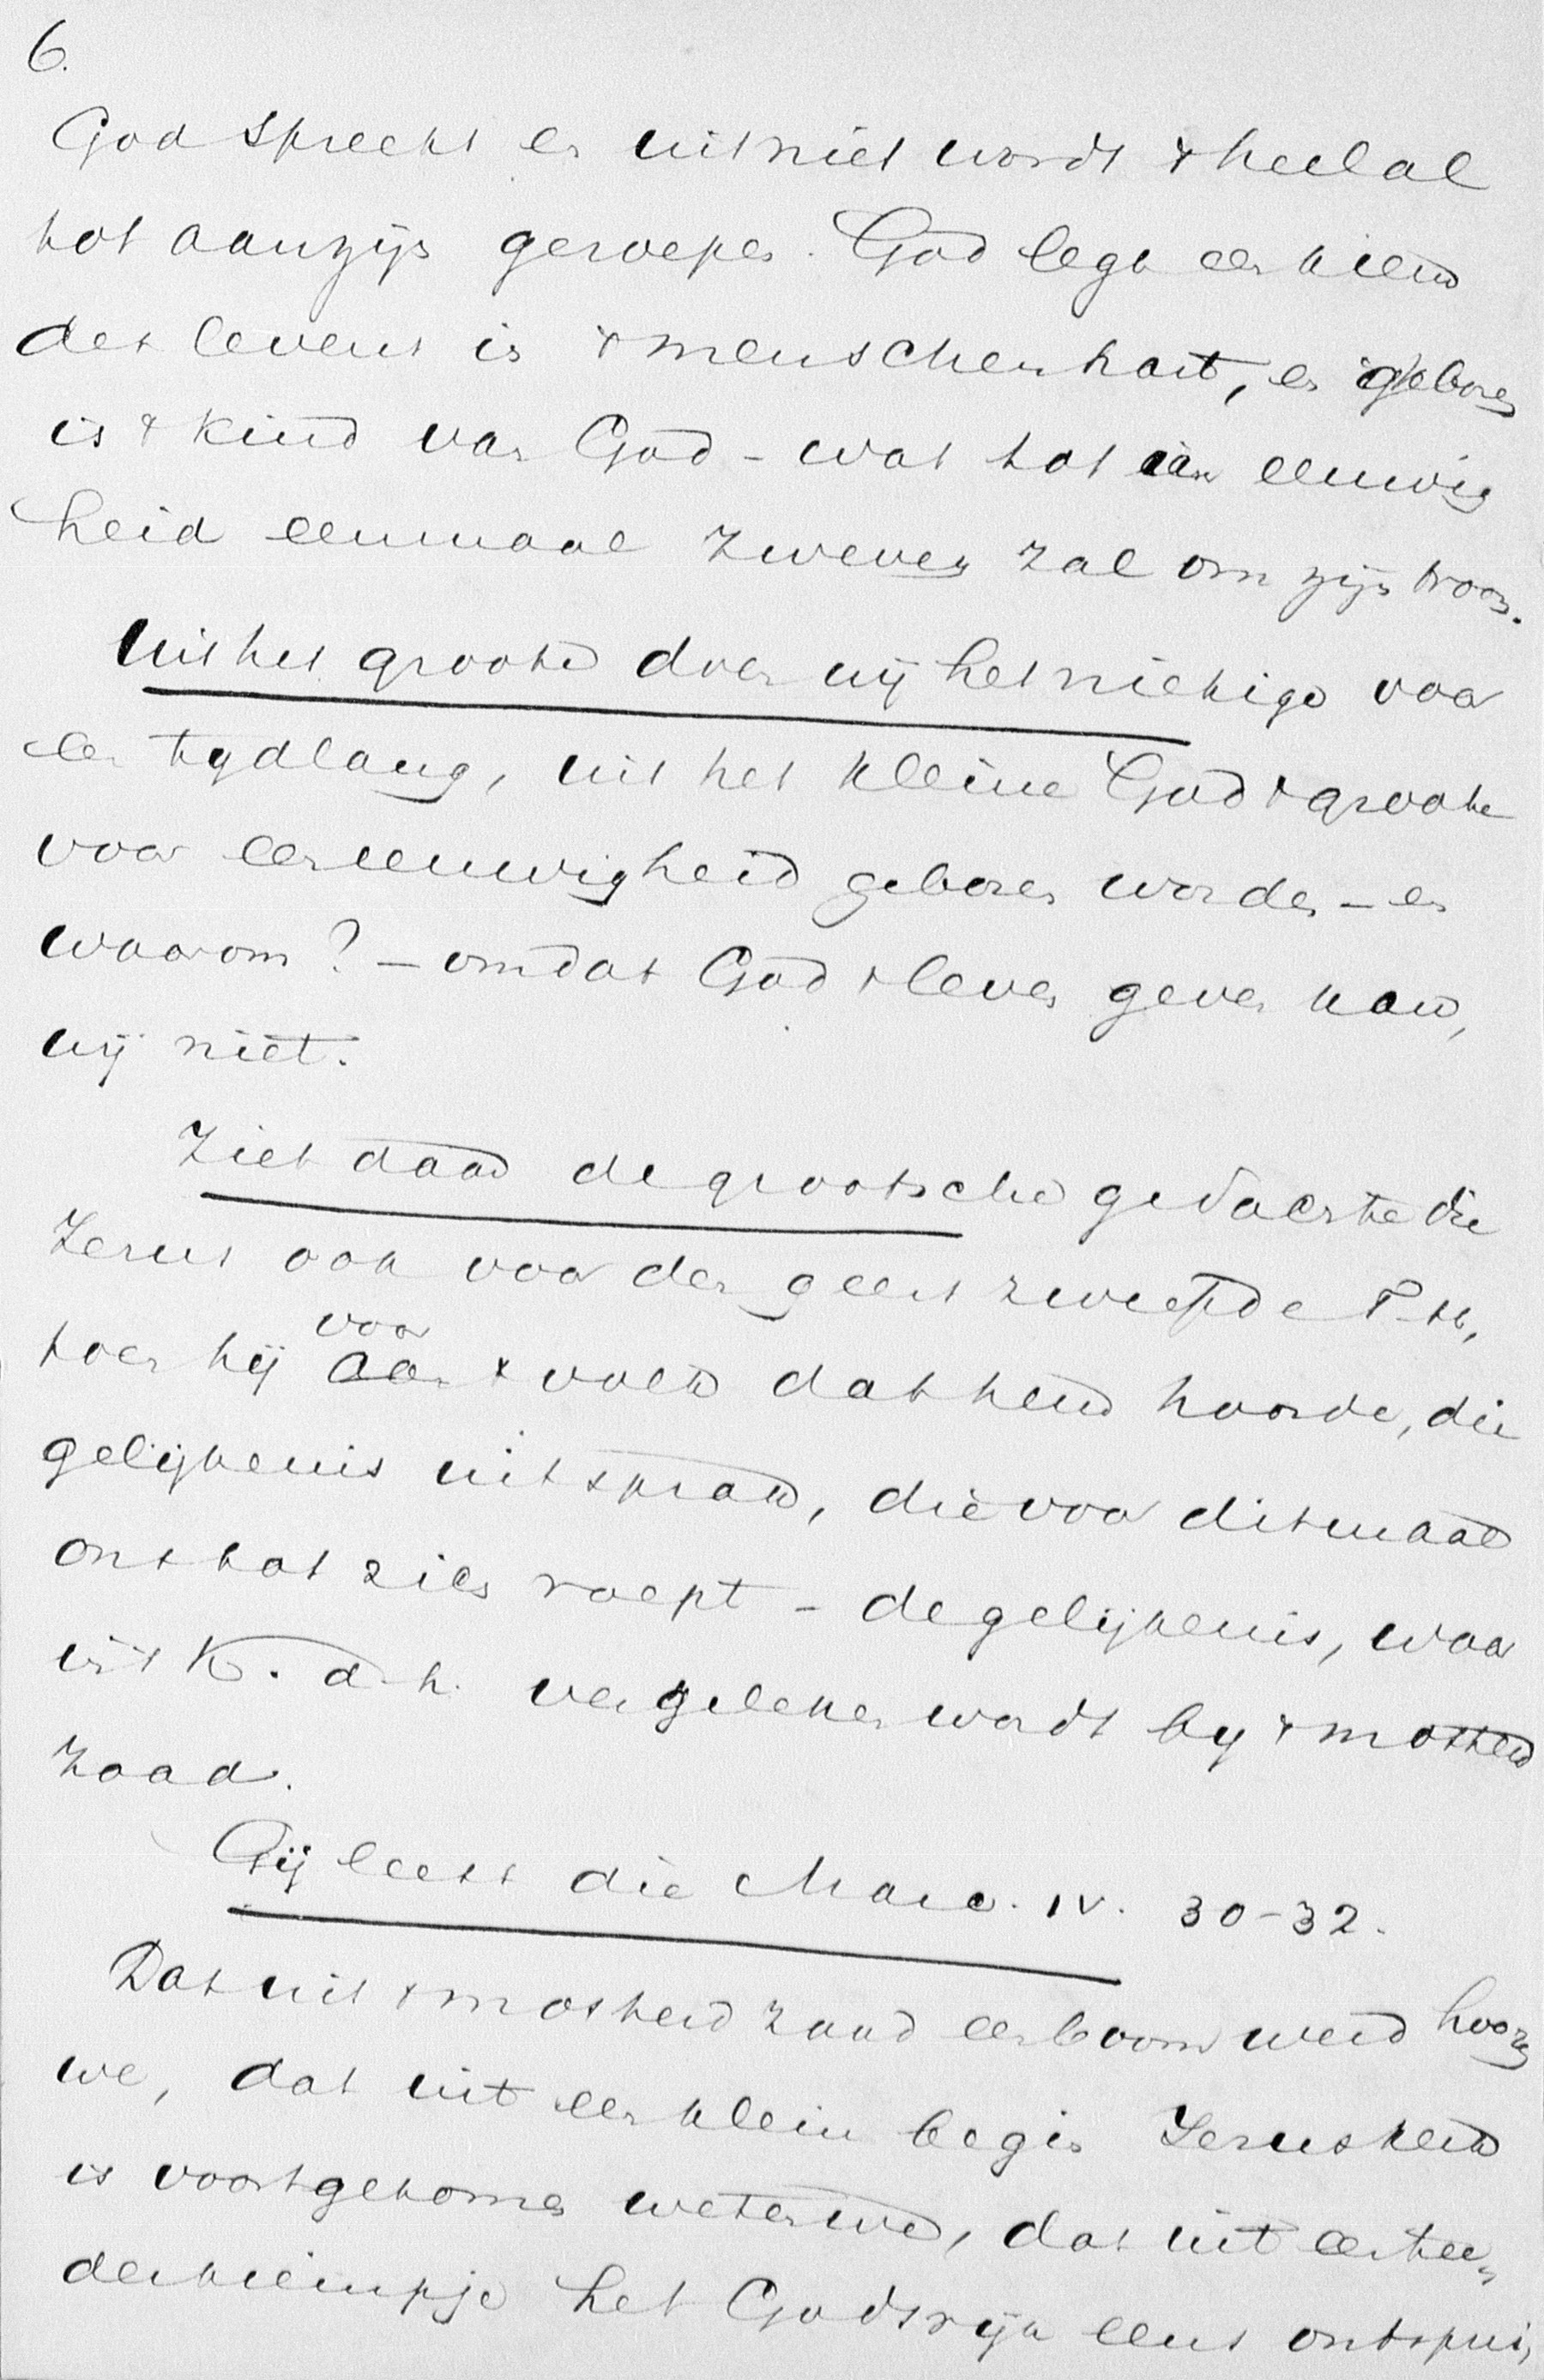 6.
God spreekt en uit niet wordt 't heelal
tot aanzijn geroepen. God legt een kiem
des levens in 't menschenhart, en geboren
is 't kind van God - wat tot in eeuwig
heid eenmaal zweven zal om zijn troon.
Uit het groote doen wij het nietige voor
een tydlang, uit het kleine God 't groote
voor een eeuwigheid geboren worden - en
waarom? - omdat God 't leven geven kan,
wij niet.
Ziet daar de grootsche gedachte die
Jezus ook voor den geest zweefde T.H.,
toen hij voor
aan 't volk dat hem hoorde, die
gelijkenis uitsprak, die voor ditmaal
ons tot zien roept - de gelijkenis, waar
in 't K. d. h. vergeleken wordt by 't mosterd
zaad.
Gij leest die Marc. IV. 30-32.
Dat uit 't mosterd zaad een boom werd hooren
we, dat uit een klein begin Jezus kerk
is voortgekomen weten we, dat uit een tee-
der kiempje het Godsrijk eens ontspruit,